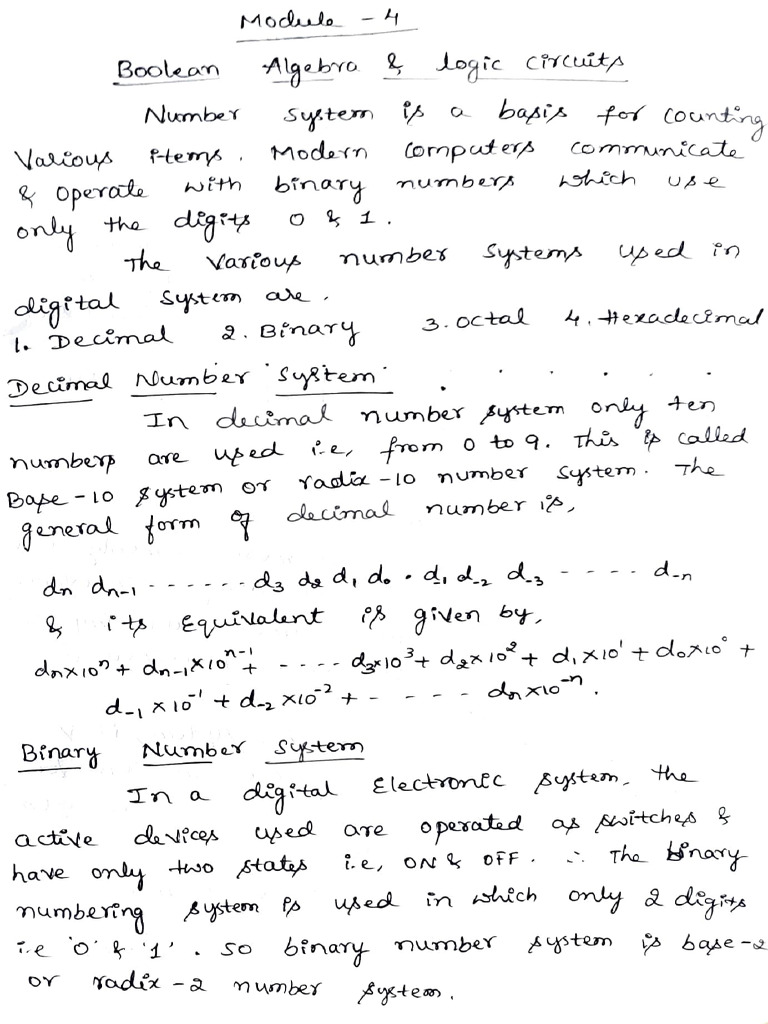 Module - 4
Boolean Algebra & logic circuits
Number system is a basis for counting
Various items. Modern computers communicate
& operate with binary numbers which use
only the digits 0 & 1.
The various number systems used in
digital system are.
1. Decimal 2. Binary 3. Octal 4. Hexadecimal
Decimal Number System
In decimal number system only ten
numbers are used i.e, from 0 to 9. This is called
Base-10 system or radix-10 number system. The
general form of decimal number is,
dₙ dₙ₋₁ ------ d₃ d₂ d₁ d₀ . d₋₁ d₋₂ d₋₃ ---- d₋ₙ
& its Equivalent is given by,
dₙ×10ⁿ + dₙ₋₁×10ⁿ⁻¹ + ---- d₃×10³ + d₂×10² + d₁×10¹ + d₀×10⁰ +
d₋₁ × 10⁻¹ + d₋₂ ×10⁻² + - - - - dₙ×10⁻ⁿ.
Binary Number System
In a digital Electronic system, the
active devices used are operated as switches &
have only two states i.e, ON & OFF. ∴ The binary
numbering system is used in which only 2 digits
i.e '0' & '1'. So binary number system is base-2
or radix-2 number system.